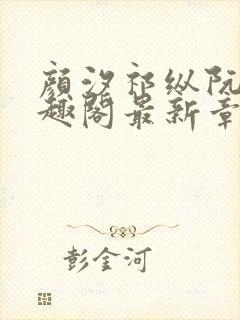 顔汐祁纵阮
趣阁最新章
彭金河